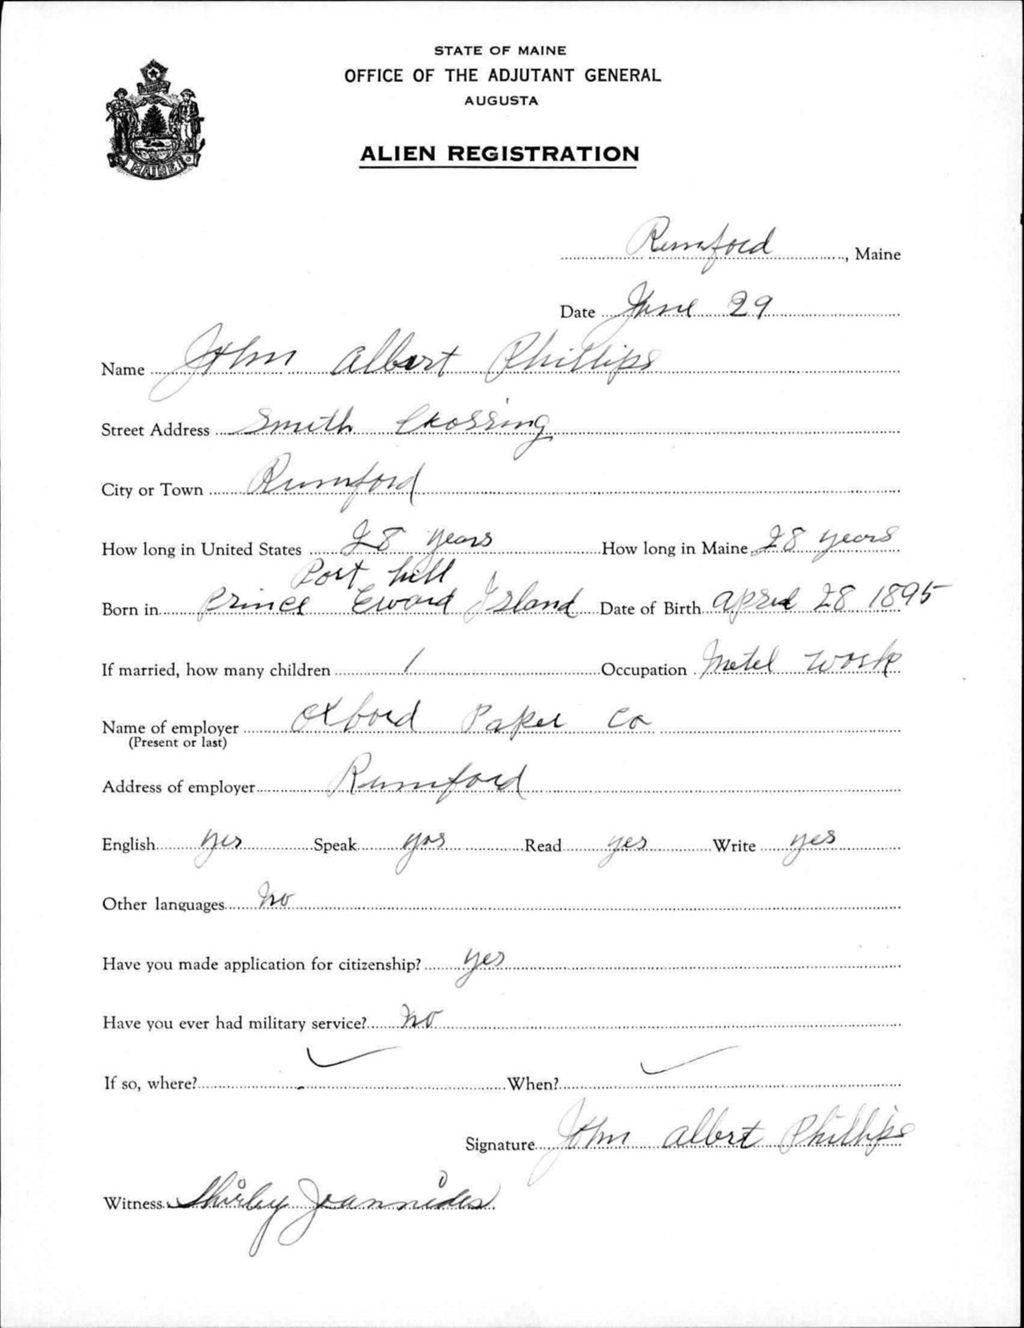 STATE OF MAINE
OFFICE OF THE ADJUTANT GENERAL
AUGUSTA
ALIEN REGISTRATION
MAINE
Rumford, Maine
Date June 29
Name John Albert Phillips
Street Address Smith Crossing
City or Town Rumford
How long in United States 28 years How long in Maine 28 years
Port hill
Born in Prince Eward Island Date of Birth April 28 1895
If married, how many children 1 Occupation Metel work
Name of employer Oxford Paper Co
(Present or last)
Address of employer Rumford
English yes Speak yes Read yes Write yes
Other languages No
Have you made application for citizenship? yes
Have you ever had military service? No
If so, where? When?
Signature John Albert Phillips
Witness Shirley Joannides